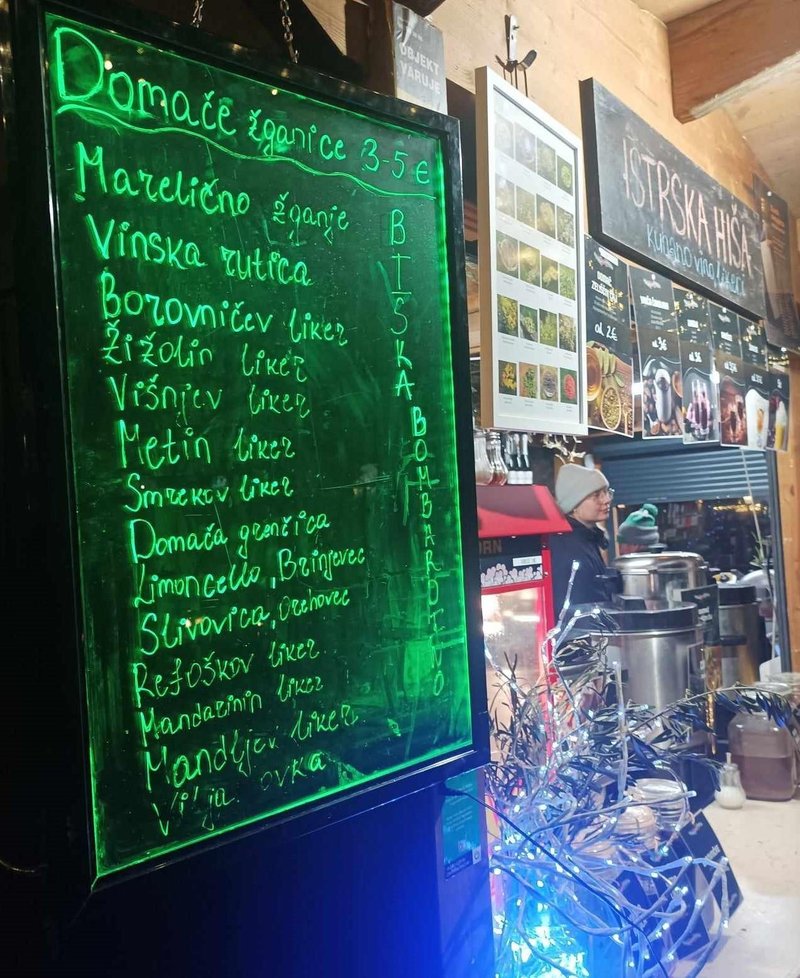 Domače žganice 3-5€
Marelično žganje
Vinska rutica
Borovničev liker
Žižolin liker
Višnjev liker
Metin liker
Smrekov liker
Domača grenčica
Limoncello, Brinjevec
Slivovica, Orehovec
Refoškov liker
Mandarinin liker
Mandljev liker
BIŠKA BOMBARDINO
OBJEKT
VARUJE
ISTRSKA HIŠA
kuhano vino, likerji
od 2€